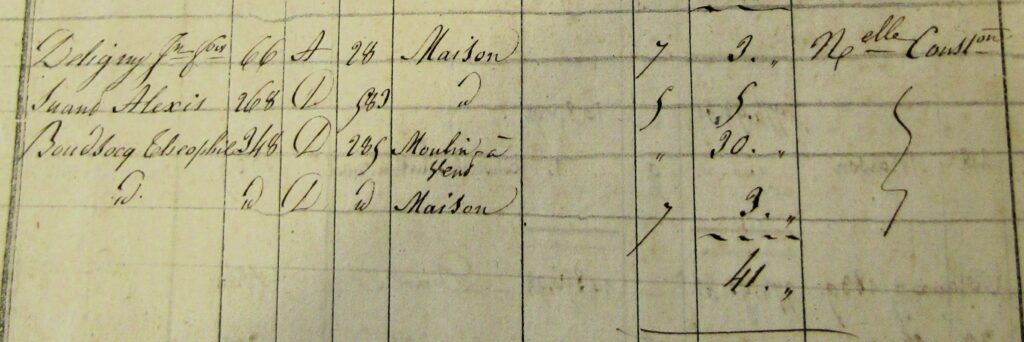 Deligny 66 A 28 Maison 7 3. „ Nelle Conston
Alexis 268 D 583 d 5 5.
Boudsocq Theophile 348 D 285 Moulin à „ 30. „
Vent
id. id D id Maison 7 3. „
41. „